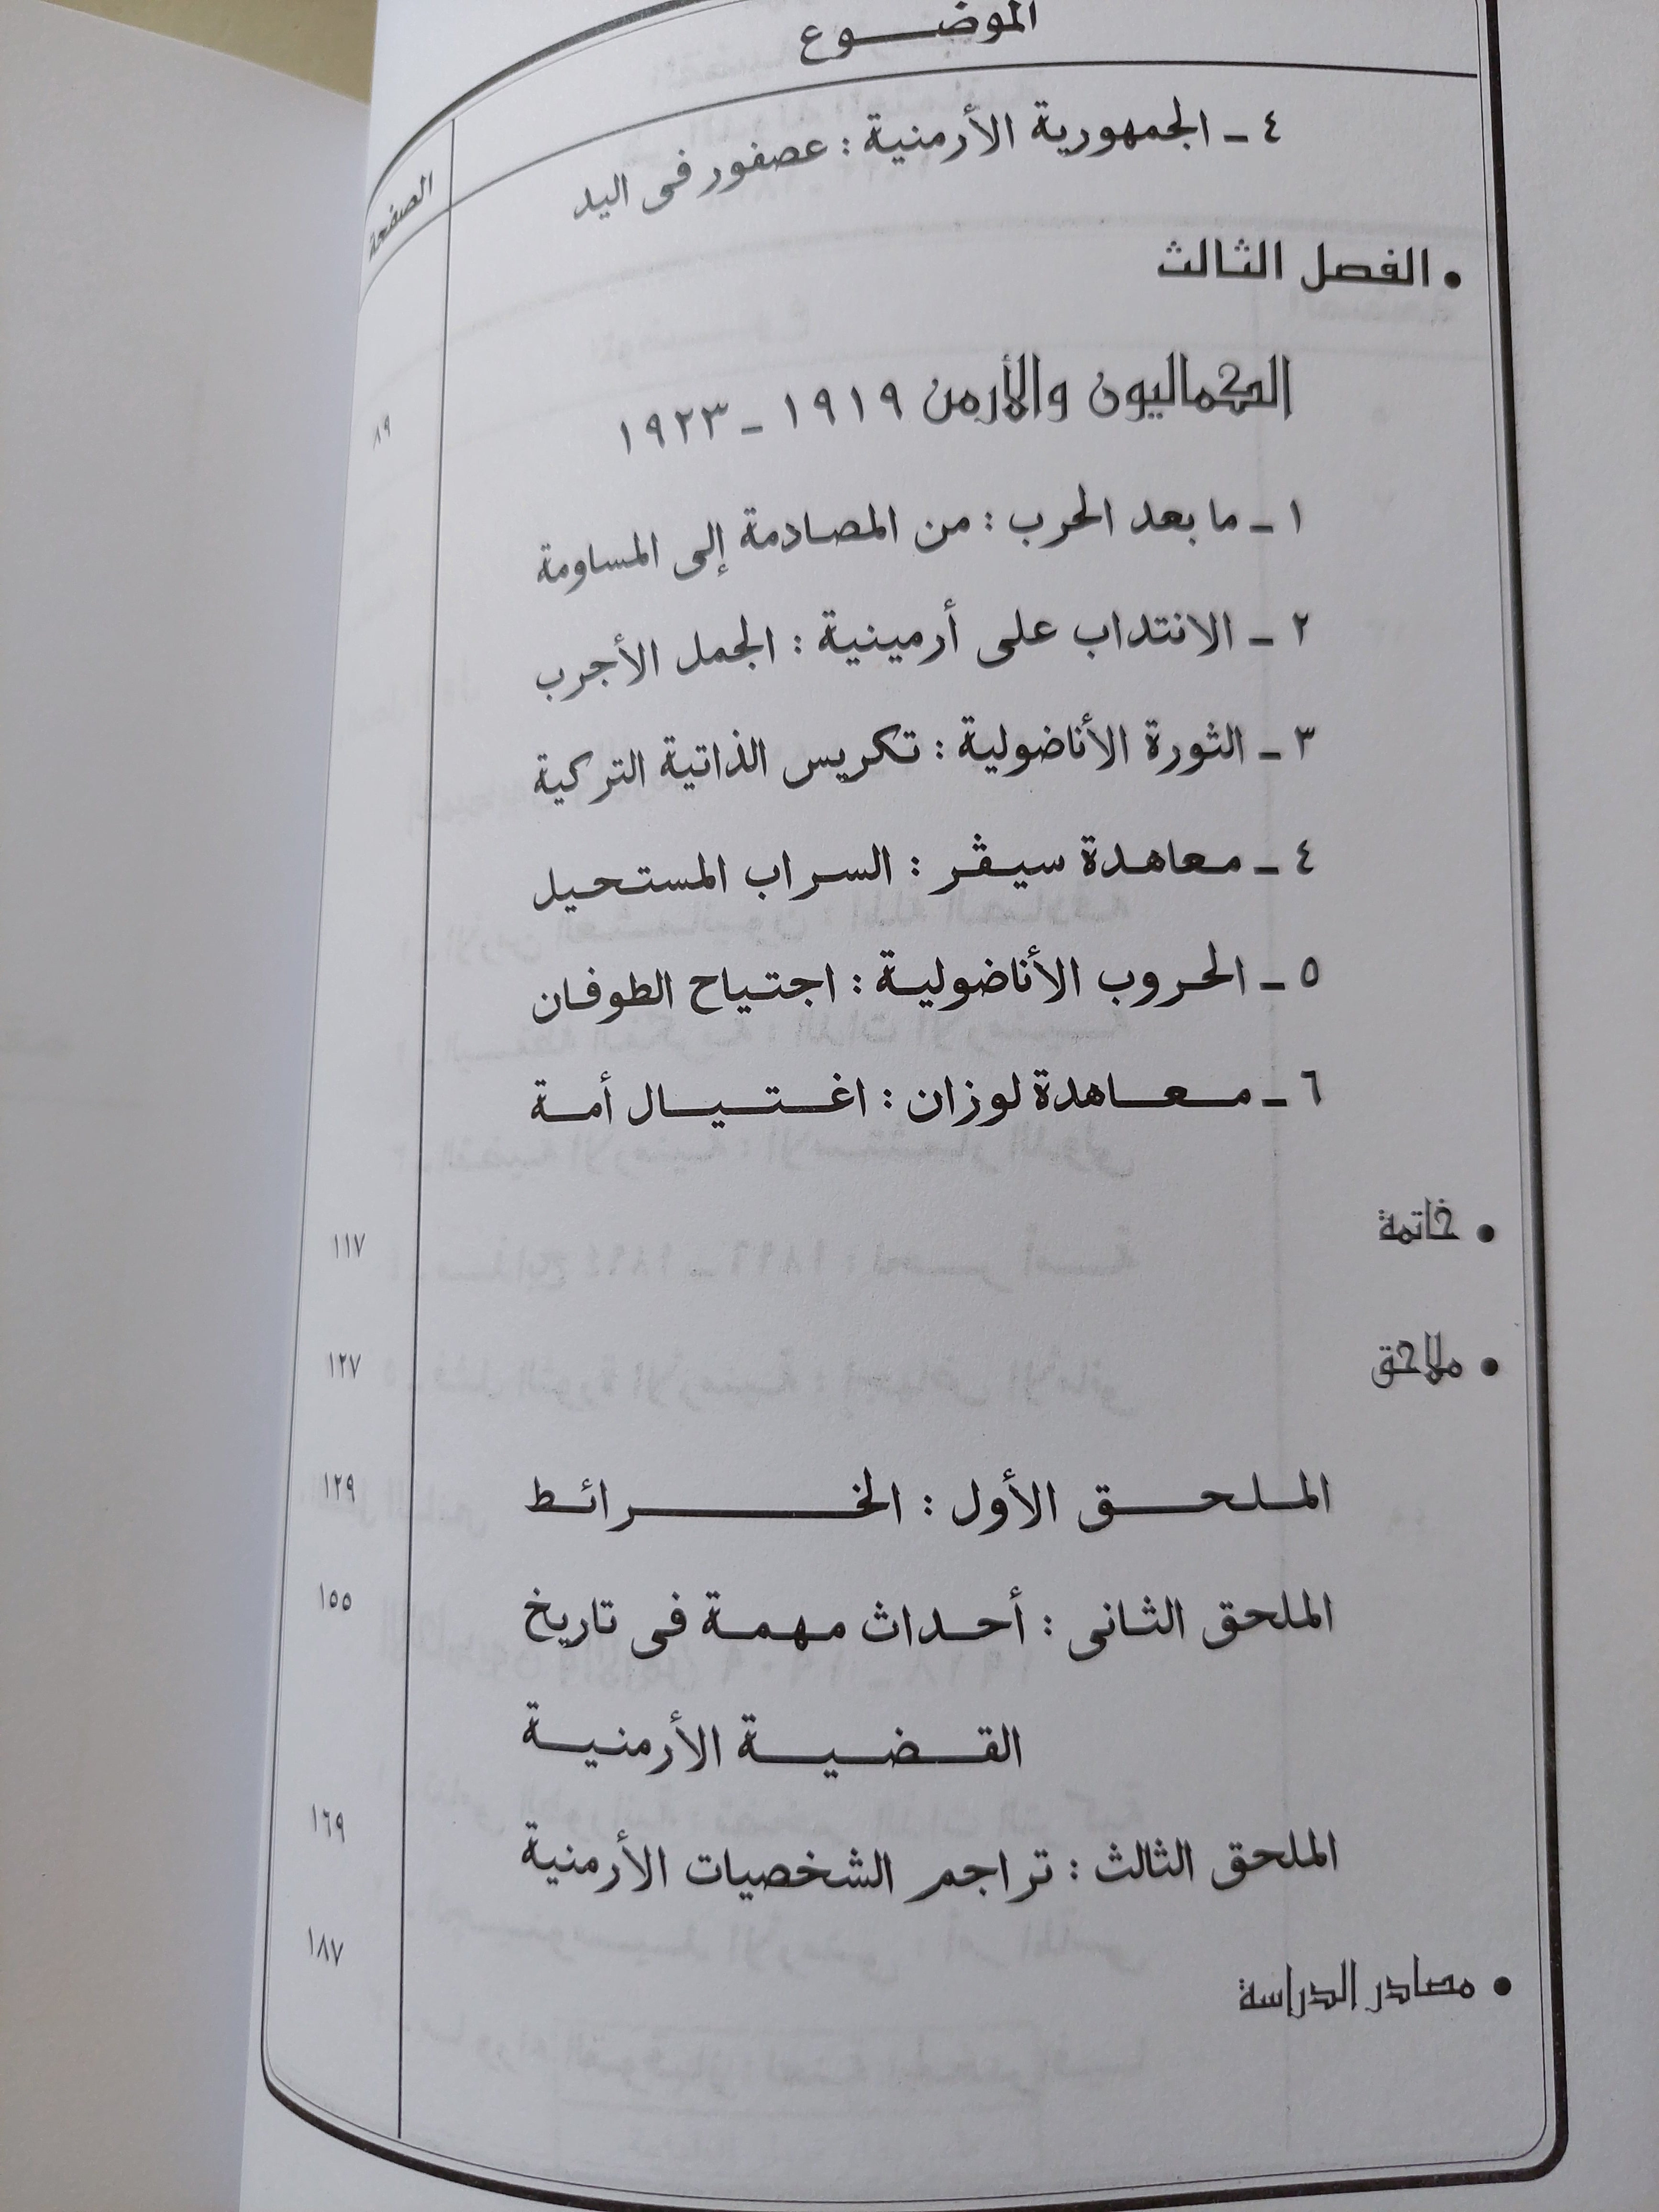 الموضــوع
الصفحة
٤ ـ الجمهورية الأرمنية : عصفور فى اليد
• الفصل الثالث
الكماليون والأرمن ١٩١٩ ـ ١٩٢٣
٨٩
١ ـ ما بعد الحرب : من المصادمة إلى المساومة
٢ ـ الانتداب على أرمينية : الجمل الأجرب
٣ ـ الثورة الأناضولية : تكريس الذاتية التركية
٤ ـ معاهدة سيڤر : السراب المستحيل
٥ ـ الحروب الأناضولية : اجتياح الطوفان
٦ ـ معاهدة لوزان : اغتيال أمة
• خاتمة ١١٧
• ملاحق ١٢٧
الملحق الأول : الخرائط ١٢٩
الملحق الثانى : أحداث مهمة فى تاريخ ١٥٥
القضية الأرمنية
الملحق الثالث : تراجم الشخصيات الأرمنية ١٦٩
• مصادر الدراسة ١٨٧